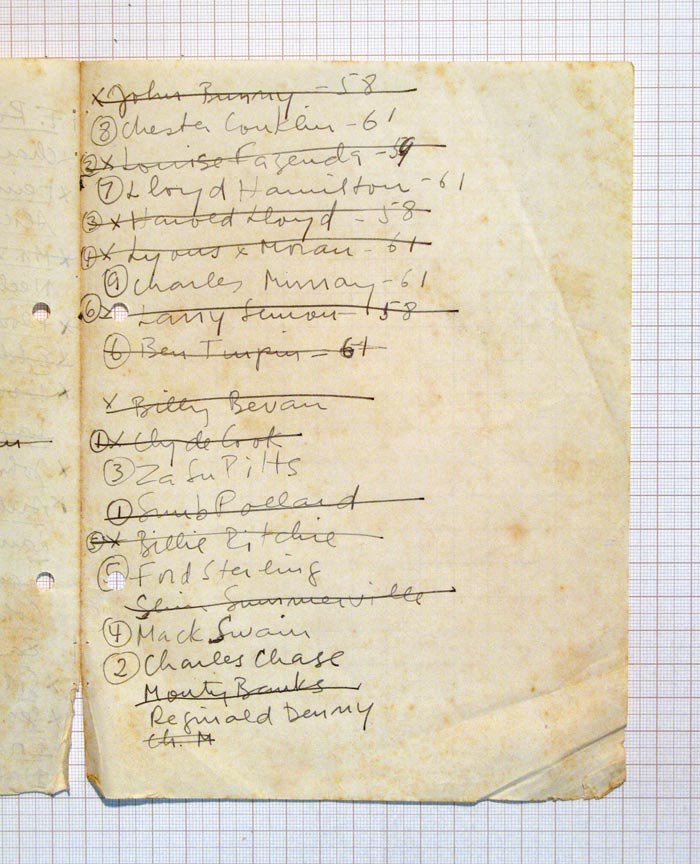 x John Bunny - 58
⑧ Chester Conklin - 61
② x Louise Fazenda - 59
⑦ Lloyd Hamilton - 61
③ x Harold Lloyd - 58
x Lyons x Moran - 61
⑨ Charles Murray - 61
⑥ x Larry Semon - 58
⑥ Ben Turpin - 61
x Billy Bevan
① x Clyde Cook
③ ZaSu Pitts
① Snub Pollard
⑤ x Billie Ritchie
⑤ Ford Sterling
Slim Summerville
④ Mack Swain
② Charles Chase
Monty Banks
Reginald Denny
Ch. M